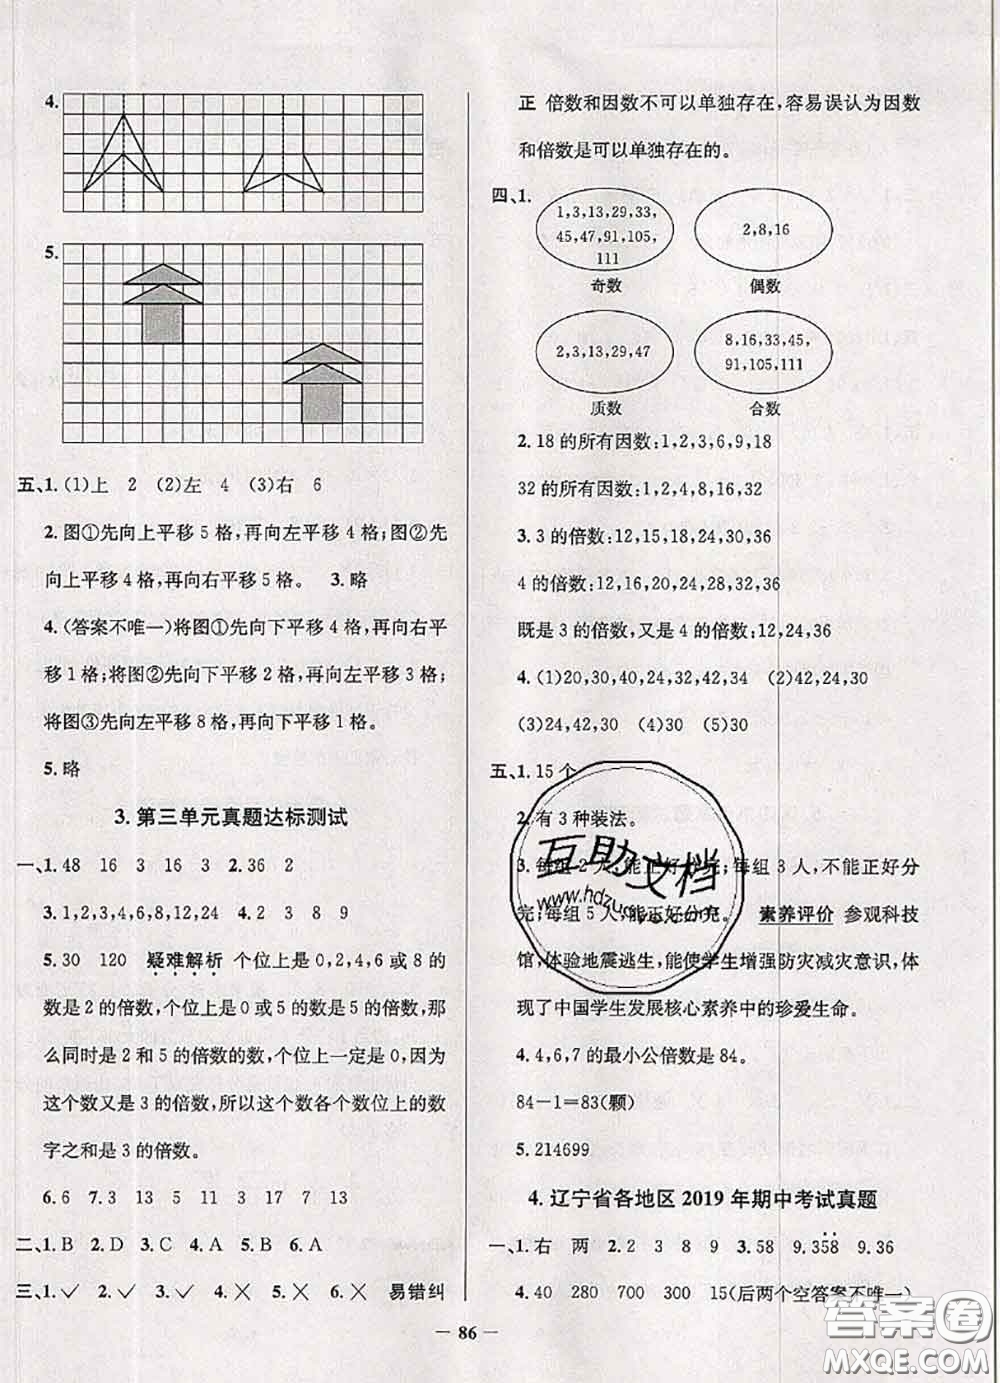 4.
5.
五、1.(1)上 2 (2)左 4 (3)右 6
2.图①先向上平移5格,再向左平移4格;图②先
向上平移4格,再向右平移5格。 3.略
4.(答案不唯一)将图①先向下平移4格,再向右平
移1格;将图②先向下平移2格,再向右平移3格;
将图③先向左平移8格,再向下平移1格。
5.略
3.第三单元真题达标测试
一、1.48 16 3 16 3 2.36 2
3.1,2,3,4,6,8,12,24 4.2 3 8 9
5.30 120 疑难解析 个位上是0,2,4,6或8的
数是2的倍数,个位上是0或5的数是5的倍数,那
么同时是2和5的倍数的数,个位上一定是0,因为
这个数又是3的倍数,所以这个数各个数位上的数
字之和是3的倍数。
6.6 7.3 13 5 11 53 19 17
二、1.B 2.D 3.C 4.A 5.B 6.A
三、1.✓ 2.✓ 3.✓ 4.✗ 5.✗ 6.✗ 易错纠
正 倍数和因数不可以单独存在,容易误认为因数
和倍数是可以单独存在的。
四、1.
1,3,13,29,33,
45,47,91,105,
111
奇数
2,8,16
偶数
2,3,13,29,47
质数
8,16,33,45,
91,105,111
合数
2.18的所有因数:1,2,3,6,9,18
32的所有因数:1,2,4,8,16,32
3.3的倍数:12,15,18,21,24,27,30,33,36
4的倍数:12,16,20,24,28,32,36
既是3的倍数,又是4的倍数:12,24,36
4.(1)20,30,40,24,32,42,34 (2)42,24,30
(3)24,42,30 (4)30 (5)30
五、1.15个
2.有3种装法。
3.每组2人,能正好分完;每组3人,不能正好分
完;每组5人,能正好分完。 素养评价 参观科技
馆,体验地震逃生,能使学生增强防灾减灾意识,体
现了中国学生发展核心素养中的珍爱生命。
4.4,6,7的最小公倍数是84。
84-1=83(颗)
5.214699
4.辽宁省各地区2019年期中考试真题
一、1.右 两 2.2 3 8 9 3.58 9.3̇5̇8 9.36
4.40 280 700 300 15(后两个空答案不唯一)
— 86 —
互助文档
答案圈
MXQE.COM